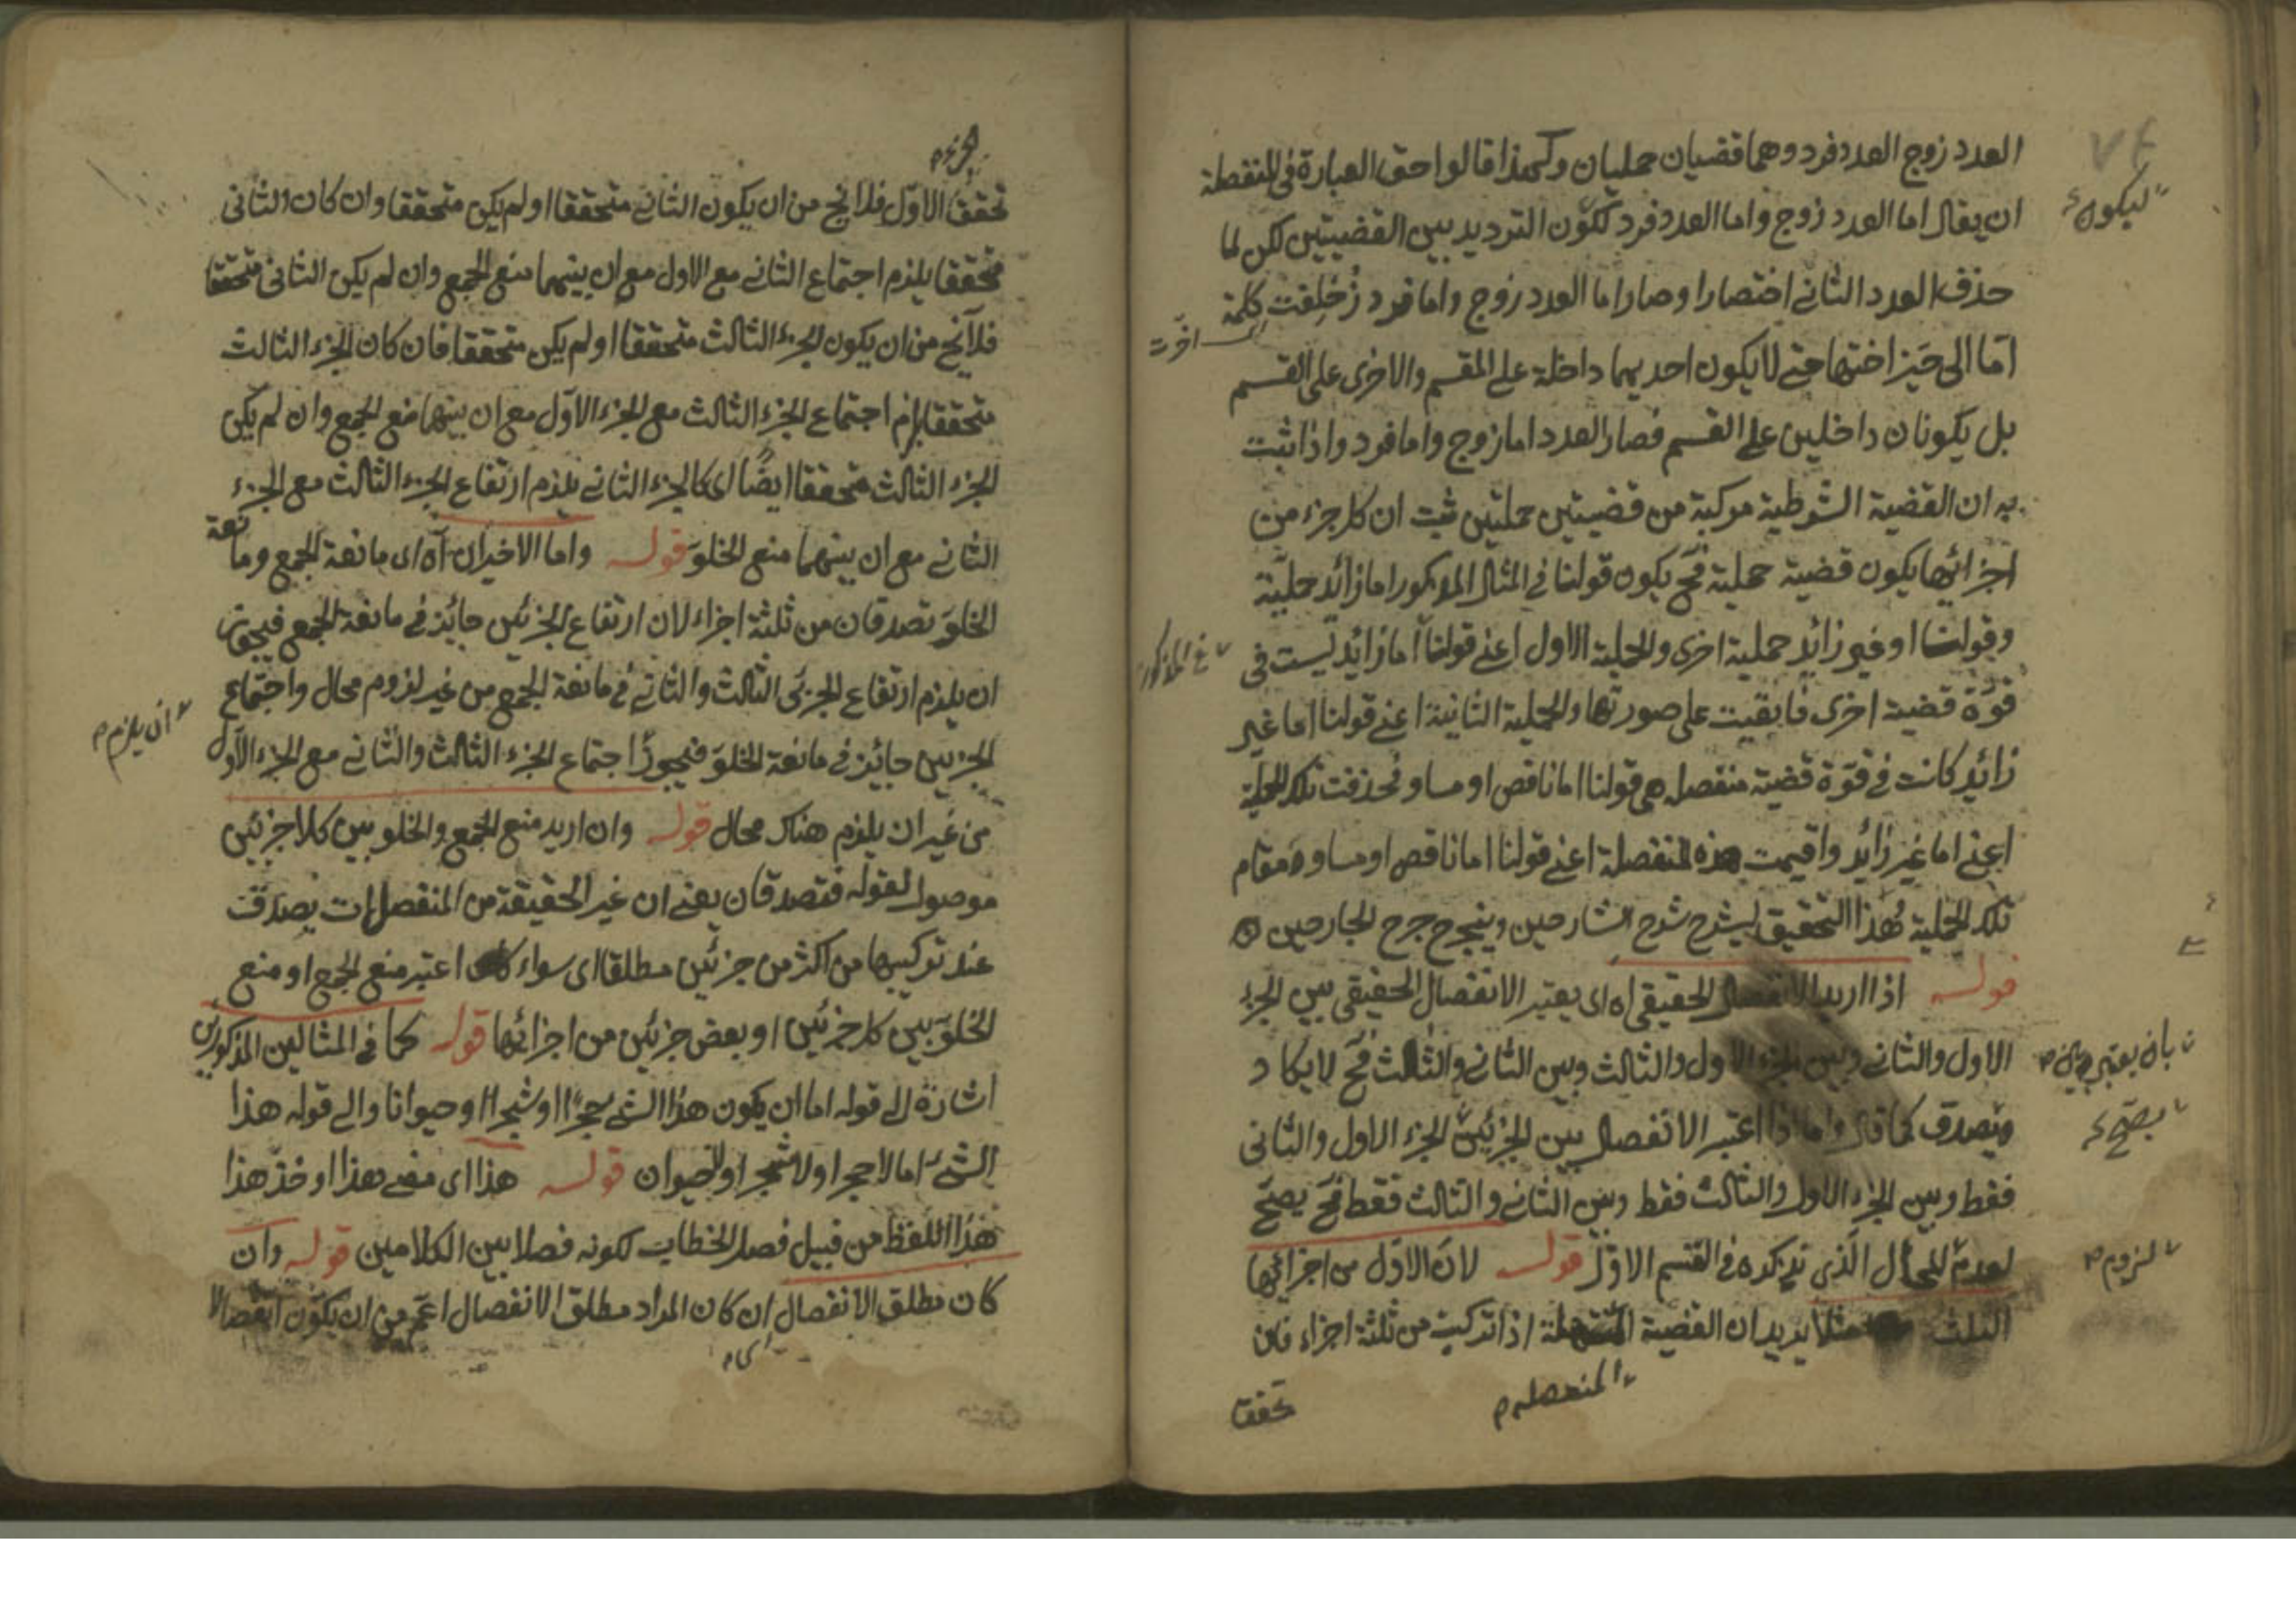 العدد زوج العدد فرد وهما قضيتان حمليتان ولهذا قالوا حق العبارة فى المنفصلة
ان يقال اما العدد زوج واما العدد فرد لكون الترديد بين القضيتين لكن لما
حذف العدد الثانى اختصارا وصار اما العدد زوج واما فرد زحلفت كلمة
امّا الى حيّز اختها حتى لا يكون احديهما داخلة على المقسم والاخرى على القسم
بل يكونان داخلين على القسم فصار العدد اما زوج واما فرد واذا ثبت
به ان القضية الشرطية مركبة من قضيتين حمليتين ثبت ان كل جزء من
اجزائها يكون قضية حملية فح يكون قولنا فى المثال المذكور اما زائد حمليّة
وقولنا او غير زائد حملية اخرى والحملية الاول اعنى قولنا اما زائد ليست فى
قوّة قضية اخرى فابقيت على صورتها والحملية الثانية اعنى قولنا اما غير
زائد كانت فى قوّة قضية منفصلة هى قولنا اما ناقص او مساو فحذفت تلك الحملية
اعنى اما غير زائد واقيمت هذه المنفصلة اعنى قولنا اما ناقص او مساو مقام
تلك الحملية فهذا التحقيق ليشرح شرح الشارحين ويجرح جرح الجارحين
قوله اذا اريد الانفصال الحقيقى اه اى يعتبر الانفصال الحقيقى بين الجزء
الاول والثانى وبين الجزء الاول والثالث وبين الثانى والثالث فح لا يكاد
ويصدق كما قال واما اذا اعتبر الانفصال بين الجزئين الجزء الاول والثانى
فقط وبين الجزء الاول والثالث فقط وبين الثانى والثالث فقط فح يصح
لعدم المحال الذى نذكره فى القسم الاول قوله لان الاول من اجزائها
الثلث مثلا يريد ان القضية المنفصلة اذا تركبت من ثلثة اجزاء فان
ليكون
اخرت
المذكور
بان يعتبر
يصح
لزوم
المنفصلة
تحقق
الجزء
تحقق الاوّل فلا يخ من ان يكون الثانى متحققا او لم يكن متحققا وان كان الثانى
متحققا يلزم اجتماع الثانى مع الاول مع ان بينهما منع الجمع وان لم يكن الثانى متحققا
فلا يخ من ان يكون الجزء الثالث متحققا او لم يكن متحققا فان كان الجزء الثالث
متحققا يلزم اجتماع الجزء الثالث مع الجزء الاوّل مع ان بينهما منع الجمع وان لم يكن
الجزء الثالث متحققا ايضًا اى كالجزء الثانى يلزم ارتفاع الجزء الثالث مع الجزء
الثانى مع ان بينهما منع الخلوّ قوله واما الاخيران آه اى مانعة الجمع ومانعة
الخلوّ تصدقان من ثلثة اجزاء لان ارتفاع الجزئين جائز فى مانعة الجمع فيجوز
ان يلزم ارتفاع الجزئى الثالث والثانى فى مانعة الجمع من غير لزوم محال واجتماع
الجزئين جائز فى مانعة الخلوّ فيجوز اجتماع الجزء الثالث والثانى مع الجزء الاول
من غير ان يلزم هناك محال قوله وان اريد منع الجمع والخلو بين كل اجزئين
موصول لقوله فتصدقان يعنى ان غير الحقيقة من المنفصلات يصدق
عند تركيبها من اكثر من جزئين مطلقا اى سواء كان اعتبر منع الجمع او منع
الخلوّ بين كل جزئين او بعض جزئين من اجزائها قوله كما فى المثالين المذكورين
اشارة الى قوله اما ان يكون هذا الشئ حجرا او شجرا او حيوانا والى قوله هذا
الشئ اما لا حجر او لا شجر او لا حيوان قوله هذا اى مضى هذا او خذ هذا
هذا اللفظ من قبيل فصل الخطاب لكونه فصلا بين الكلامين قوله وان
كان مطلق الانفصال ان كان المراد مطلق الانفصال اعم من ان يكون انفصالا
ان يلزم